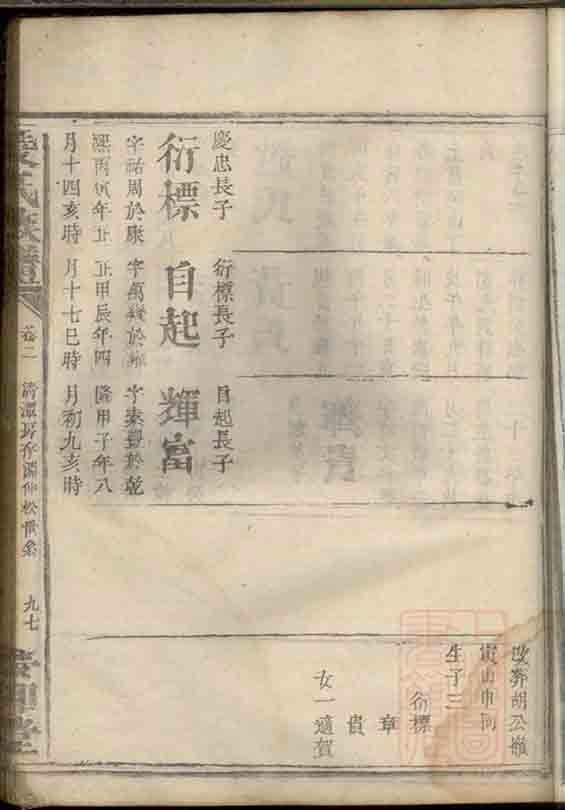 改葬胡公嶺
寅山申向
生子三
衍標
章
貴
女一適賀
慶忠長子
衍標
字祐周於康
熙丙寅年正
月十四亥時
衍標長子
自起
字萬於雍
正甲辰年四
月十七巳時
自起長子
輝富
字素豐於乾
隆甲子年八
月初九亥時
氏族譜
卷二
清潭房存淵仲松世系
九七
堂